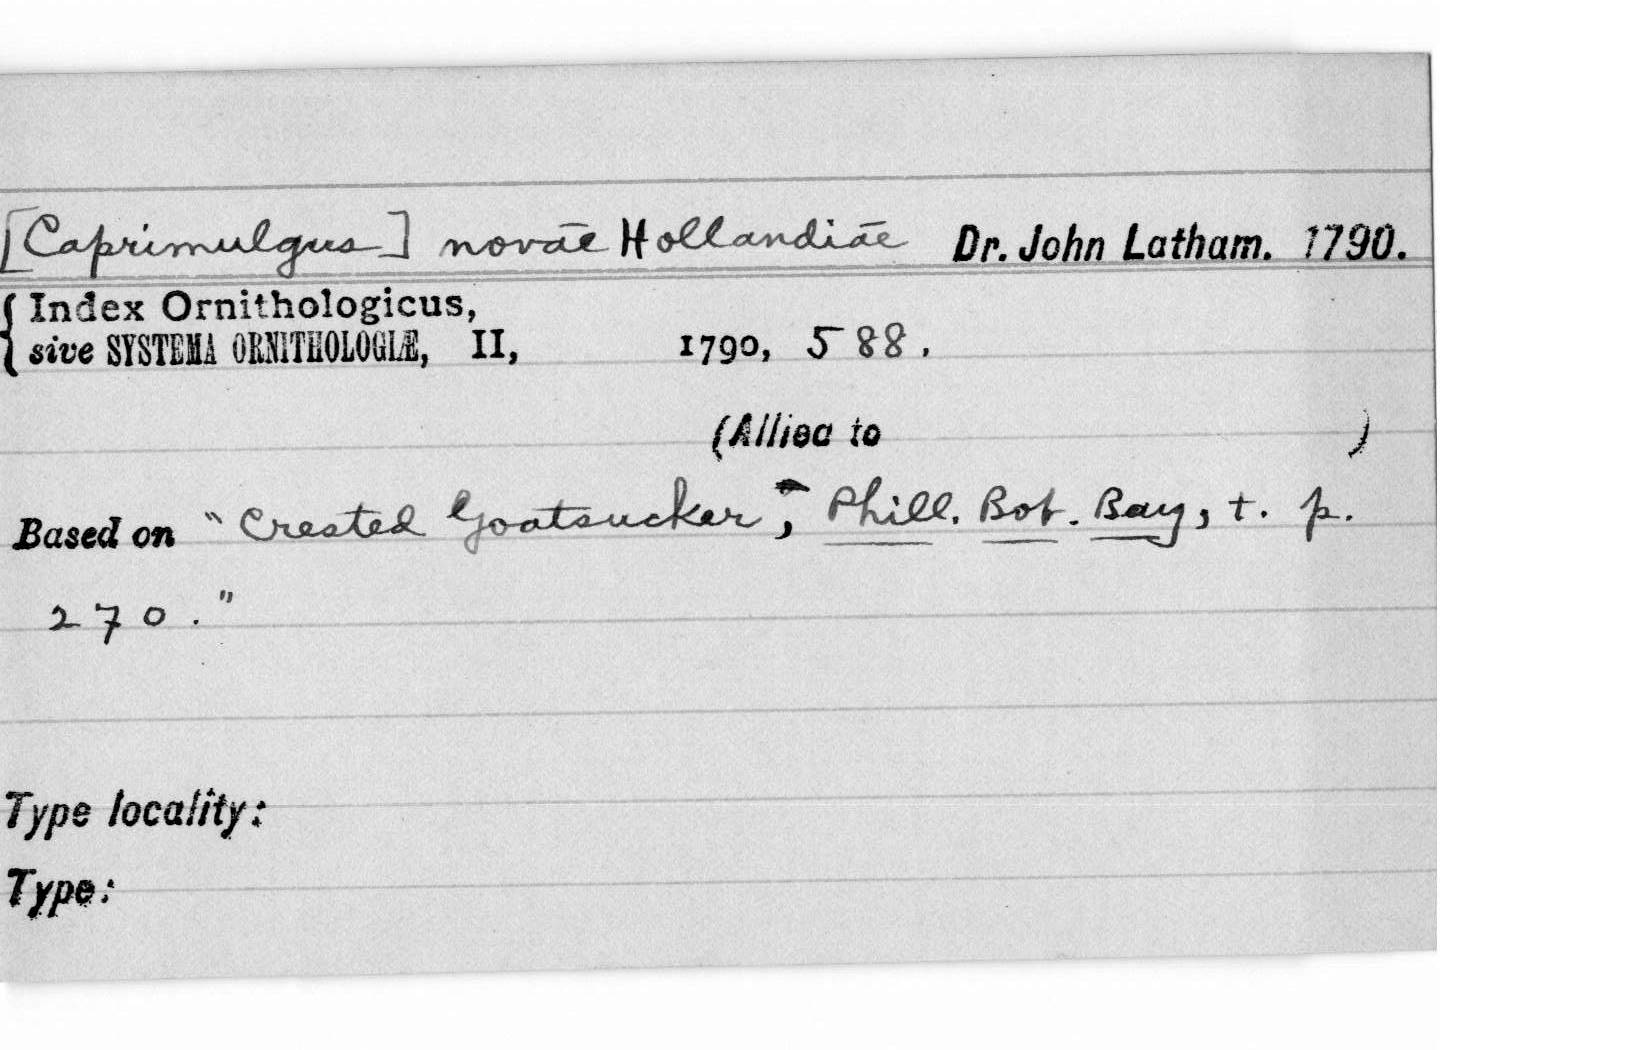 [Caprimulgus] novae Hollandiae Dr. John Latham. 1790.
Index Ornithologicus,
sive SYSTEMA ORNITHOLOGIÆ, II, 1790, 588.
(Allied to )
Based on "Crested Goatsucker, Phill. Bot. Bay, t. p.
270."
Type locality:
Type: